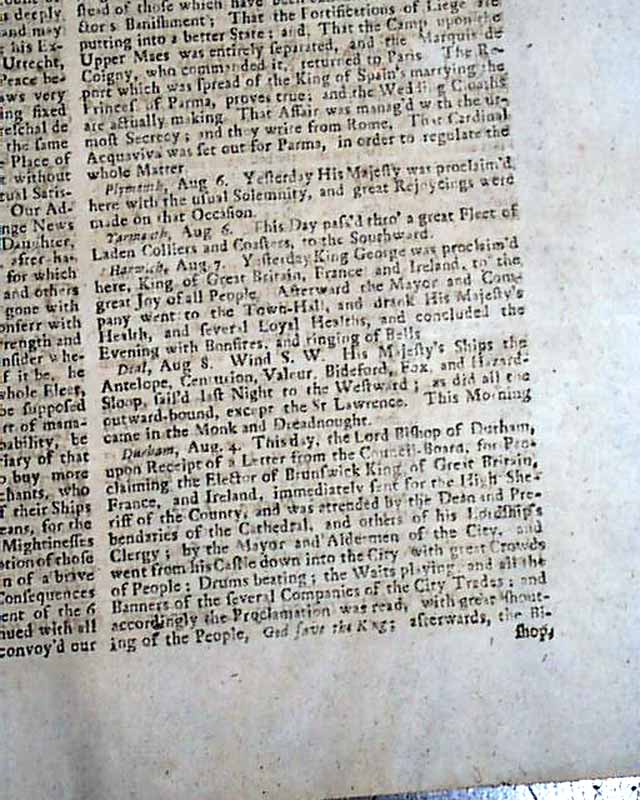 deeply
and may
his Ex-
Utrecht,
Peace be-
aws very
ing fixed
reschal de
the same
Place of
without
tual Satis-
Our Ad-
nge News
Daughter,
after ha-
for which
and others
gone with
onferr with
rength and
nsider whe-
f it be, he
whole Fleet,
be supposed
rt of mana-
bability, be
riary of that
o buy more
chants, who
f their Ships
eans, for the
Mightinesses
ation of those
n of a brave
Consequences
ent of the 6
nued with all
convoy'd our
stead of those which have been
ctor's Banishment; That the Fortifications of Liege are
putting into a better State; and, That the Camp upon the
Upper Maes was entirely separated, and the Marquis de
Coigny, who commanded it, returned to Paris The Re-
port which was spread of the King of Spain's marrying the
Princess of Parma, proves true; and the Wedding Cloaths
are actually making. That Affair was manag'd with the ut-
most Secrecy; and they write from Rome, That Cardinal
Acquaviva was set out for Parma, in order to regulate the
whole Matter
Plymouth, Aug 6. Yesterday His Majesty was proclaim'd
here with the usual Solemnity, and great Rejoycings were
made on that Occasion.
Yarmouth, Aug 6. This Day pass'd thro' a great Fleet of
Laden Colliers and Coasters, to the Southward.
Harwich, Aug 7. Yesterday King George was proclaim'd
here, King of Great Britain, France and Ireland, to the
great Joy of all People. Afterward the Mayor and Com-
pany went to the Town-Hall, and drank His Majesty's
Health, and several Loyal Healths, and concluded the
Evening with Bonfires, and ringing of Bells
Deal, Aug 8. Wind S. W. His Majesty's Ships the
Antelope, Centurion, Valeur, Bideford, Fox, and Hazard-
Sloop, sail'd last Night to the Westward; as did all the
outward-bound, except the St Lawrence. This Morning
came in the Monk and Dreadnought.
Durham, Aug. 4. This day, the Lord Bishop of Durham,
upon Receipt of a Letter from the Council-Board, for Pro-
claiming the Elector of Brunswick King of Great Britain,
France, and Ireland, immediately sent for the High She-
riff of the County, and was attended by the Dean and Pre-
bendaries of the Cathedral, and others of his Lordship's
Clergy; by the Mayor and Aldermen of the City, and
went from his Castle down into the City with great Crowds
of People; Drums beating; the Waits playing, and all the
Banners of the several Companies of the City Trades; and
accordingly the Proclamation was read, with great Shout-
ing of the People, God save the King; afterwards, the Bi-
shop,